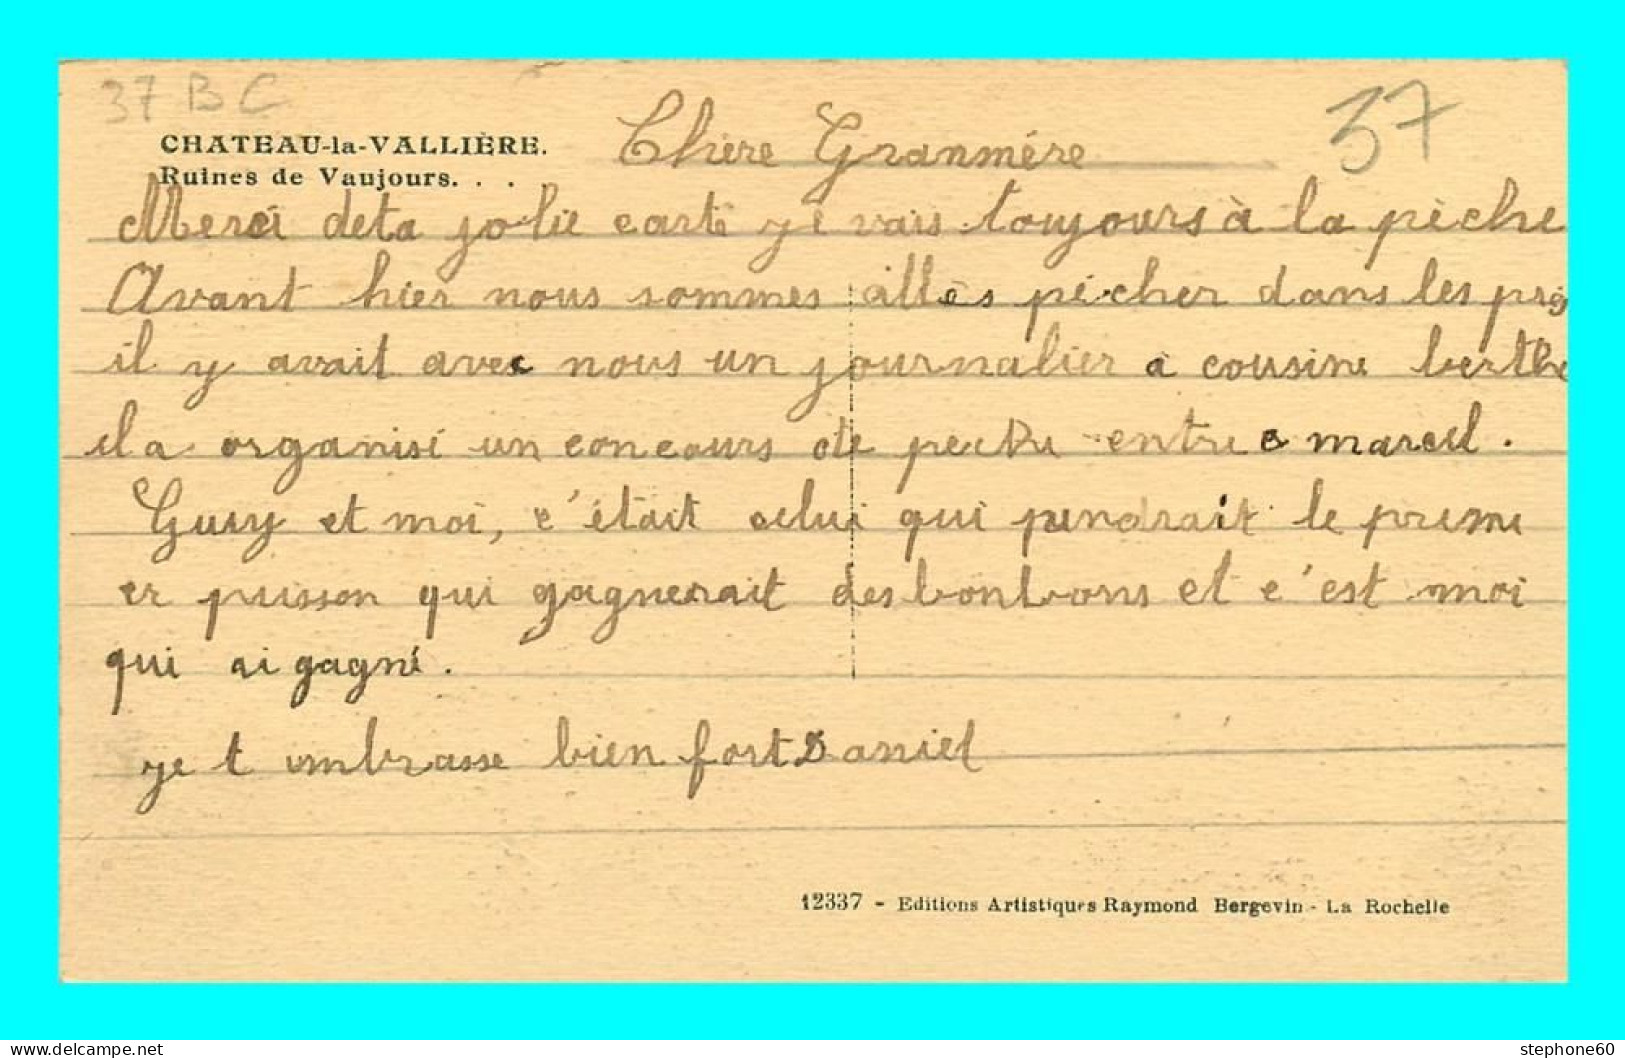 37 B C
37
CHATEAU-la-VALLIÈRE.
Ruines de Vaujours. . .
Chère Granmére
Merci deta jolie carte je vais toujours à la pèche
Avant hier nous sommes allés pècher dans les prés
il y avait avec nous un journalier a cousine berthe
ila organisé un concours de peche entre marcel.
Guuy et moi, c'était celui qui pendrait le premi
er puisson qui gagnerait des bonbons et c'est moi
qui ai gagné.
je t embrasse bien fort Daniel
12337 - Editions Artistiques Raymond Bergevin - La Rochelle
stephone60
www.delcampe.net